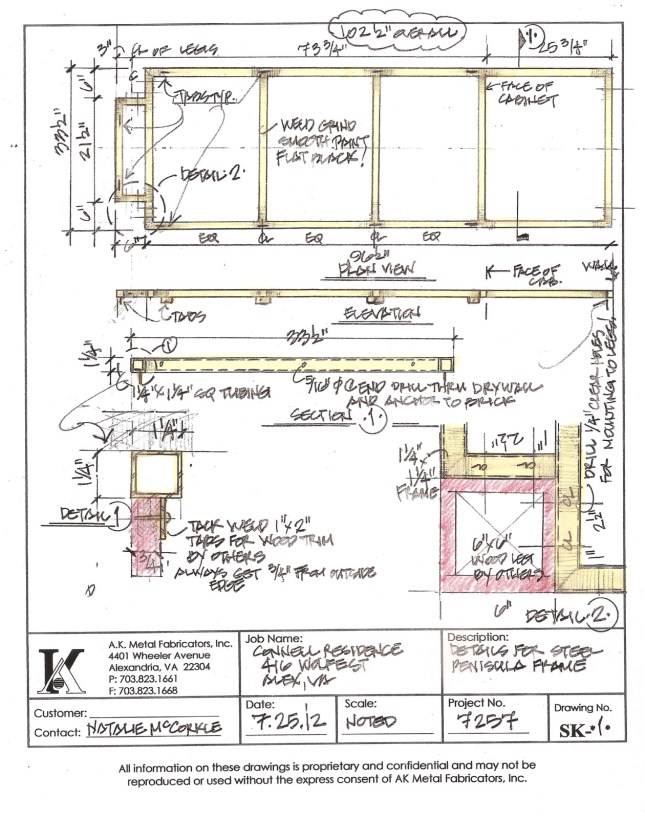 102½" OVERALL
3" ℄ OF LEGS 73¾" 25¾"
6"
TABS TYP.
FACE OF
CABINET
WELD GRIND
SMOOTH PAINT
FLAT BLACK!
33½"
21½"
DETAIL·2·
6"
6" EQ ℄ EQ ℄ EQ
96½"
PLAN VIEW
FACE OF
CAB.
WALL
TABS
ELEVATION
33½"
1¼"
1
1¼" x 1¼" SQ TUBING
5/16" Ø @ END DRILL THRU DRYWALL
AND ANCHOR TO BRICK
SECTION ·1·
DRILL ¼" CLEAR HOLES
FOR MOUNTING TO LEGS!
1¼"
1¼"
DETAIL 1
TACK WELD 1"x2"
TABS FOR WOOD TRIM
BY OTHERS
ALWAYS SET ¾" FROM OUTSIDE
EDGE
¾"
1¼" x
1¼"
FRAME
℄ ℄
℄
℄
6"x6"
WOOD LEG
BY OTHERS
6"
DETAIL·2·
A.K. Metal Fabricators, Inc.
4401 Wheeler Avenue
Alexandria, VA 22304
P: 703.823.1661
F: 703.823.1668
Job Name:
CONNELL RESIDENCE
416 WOLFEST
ALEX, VA
Description:
DETAILS FOR STEEL
PENISULA FRAME
Customer:
Contact: NATALIE McCORKLE
Date:
7.25.12
Scale:
NOTED
Project No.
7257
Drawing No.
SK-·1·
All information on these drawings is proprietary and confidential and may not be
reproduced or used without the express consent of AK Metal Fabricators, Inc.